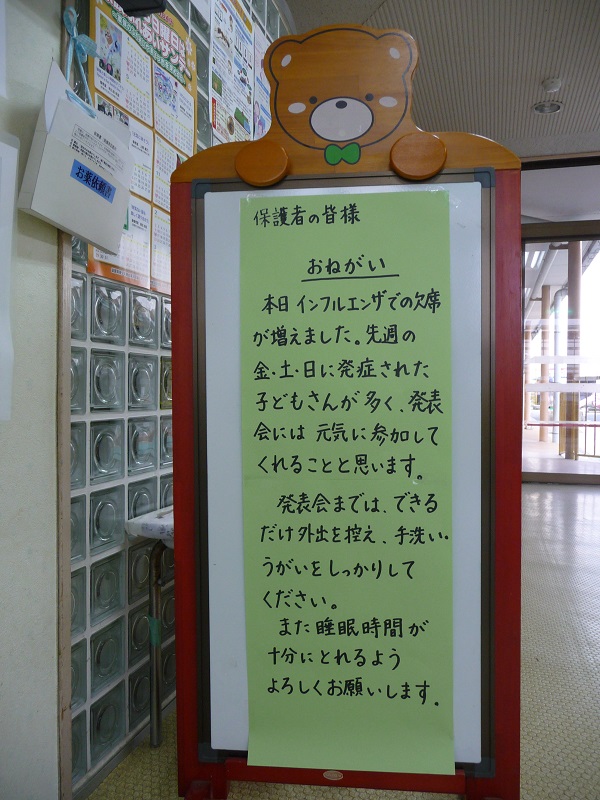 お薬依頼書
保護者の皆様
おねがい
本日 インフルエンザでの欠席
が増えました。先週の
金・土・日に発症された
子どもさんが多く、発表
会には 元気に参加して
くれることと思います。
発表会までは、できる
だけ外出を控え、手洗い・
うがいをしっかりして
ください。
また睡眠時間が
十分にとれるよう
よろしくお願いします。